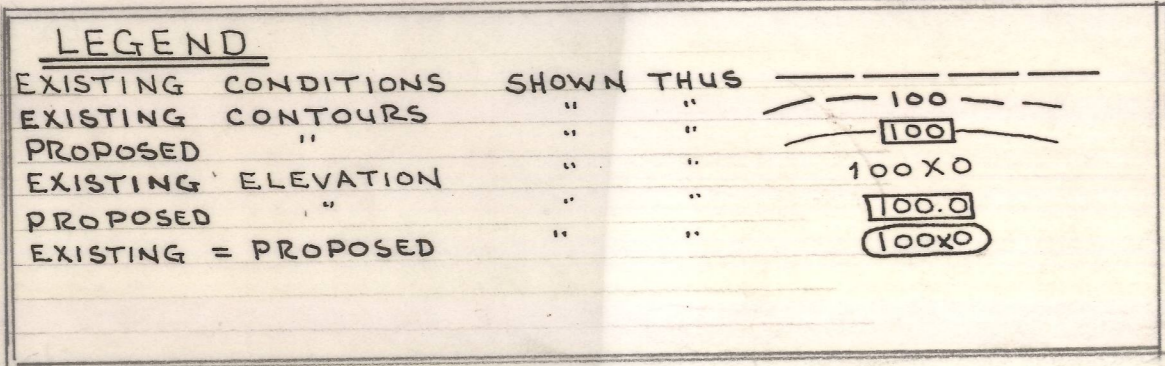 LEGEND
EXISTING CONDITIONS SHOWN THUS
EXISTING CONTOURS " " 100
PROPOSED " " " 100
EXISTING ELEVATION " " 100X0
PROPOSED " " " 100.0
EXISTING = PROPOSED " " 100x0